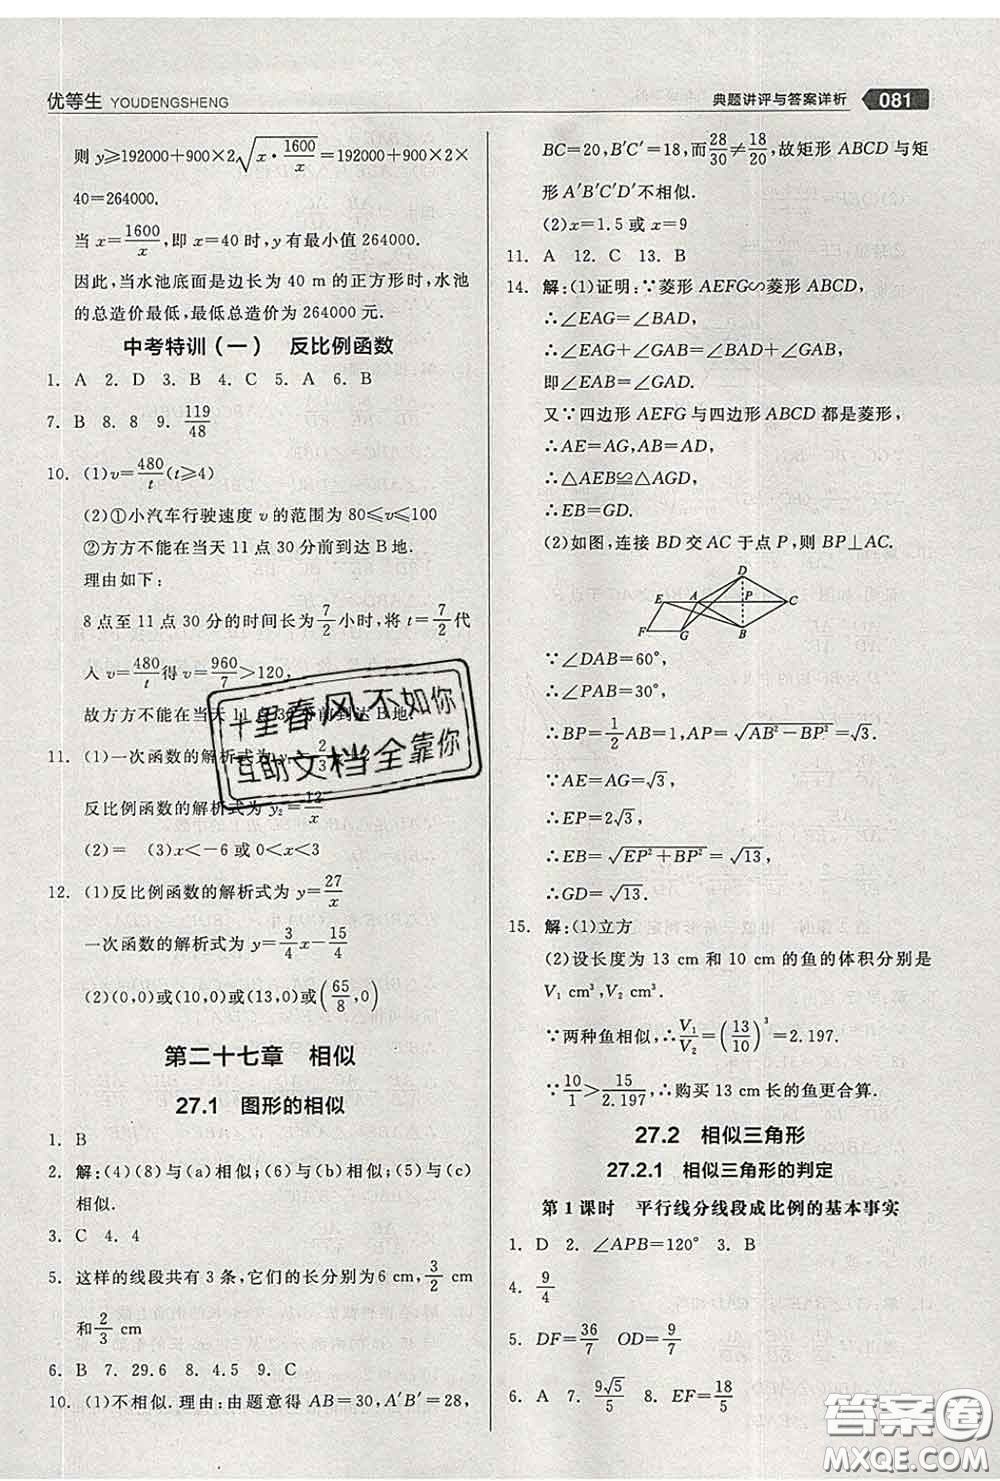 优等生 YOUDENGSHENG
典题讲评与答案详析 081
则 y≥192000+900×2√(x·1600/x)=192000+900×2×
40=264000.
当 x=1600/x,即 x=40 时,y 有最小值 264000.
因此,当水池底面是边长为 40 m 的正方形时,水池
的总造价最低,最低总造价为 264000 元.
中考特训(一) 反比例函数
1. A 2. D 3. B 4. C 5. A 6. B
7. B 8. 8 9. 119/48
10. (1)v=480/t(t≥4)
(2)①小汽车行驶速度 v 的范围为 80≤v≤100
②方方不能在当天 11 点 30 分前到达 B 地.
理由如下:
8 点至 11 点 30 分的时间长为 7/2 小时,将 t=7/2 代
入 v=480/t 得 v=960/7>120,
故方方不能在当天 11 点 30 分前到达 B 地.
11. (1)一次函数的解析式为 y
反比例函数的解析式为 y₂=12/x
(2)= (3)x<-6 或 0<x<3
12. (1)反比例函数的解析式为 y=27/x
一次函数的解析式为 y=3/4 x-15/4
(2)(0,0)或(10,0)或(13,0)或(65/8,0)
第二十七章 相似
27.1 图形的相似
1. B
2. 解:(4)(8)与(a)相似;(6)与(b)相似;(5)与(c)
相似.
3. C 4. 4
5. 这样的线段共有 3 条,它们的长分别为6 cm,3/2 cm
和 2/3 cm
6. B 7. 29.6 8. 4.5 9. C
10. (1)不相似.理由:由题意得 AB=30,A′B′=28,
BC=20,B′C′=18,而28/30≠18/20,故矩形 ABCD 与矩
形 A′B′C′D′不相似.
(2)x=1.5 或 x=9
11. A 12. C 13. B
14. 解:(1)证明:∵菱形 AEFG∽菱形 ABCD,
∴∠EAG=∠BAD,
∴∠EAG+∠GAB=∠BAD+∠GAB,
即∠EAB=∠GAD.
又∵四边形 AEFG 与四边形 ABCD 都是菱形,
∴AE=AG,AB=AD,
∴△AEB≌△AGD,
∴EB=GD.
(2)如图,连接 BD 交 AC 于点 P,则 BP⊥AC.
D
E A P C
F G B
∵∠DAB=60°,
∴∠PAB=30°,
∴BP=1/2 AB=1,AP=√(AB²-BP²)=√3.
∵AE=AG=√3,
∴EP=2√3,
∴EB=√(EP²+BP²)=√13,
∴GD=√13.
15. 解:(1)立方
(2)设长度为 13 cm 和 10 cm 的鱼的体积分别是
V₁ cm³,V₂ cm³.
∵两种鱼相似,∴V₁/V₂=(13/10)³=2.197.
∵10/1>15/2.197,∴购买 13 cm 长的鱼更合算.
27.2 相似三角形
27.2.1 相似三角形的判定
第 1 课时 平行线分线段成比例的基本事实
1. D 2. ∠APB=120° 3. B
4. 9/4
5. DF=36/7 OD=9/7
6. A 7. 9√5/5 8. EF=18/5
十里春风不如你
互助文档全靠你
答案圈
MXQE.COM